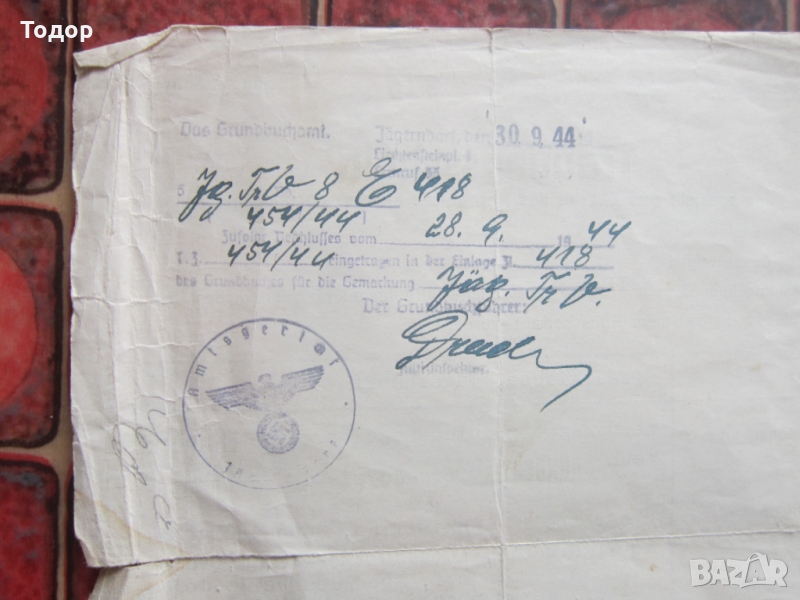 Todor
Das Grundbuchamt. Jägerndorf, den 30. 9. 44
Jäg. Tr V 8 E 418
454/44
Zufolge Beschlusses vom 28. 9. 1944
T.Z. 454/44 eingetragen in der Einlage Z. 418
des Grundbuches für die Gemarkung Jäg. Tr V.
Der Grundbuchführer:
Justizsekretär.
Amtsgericht
BAZAR